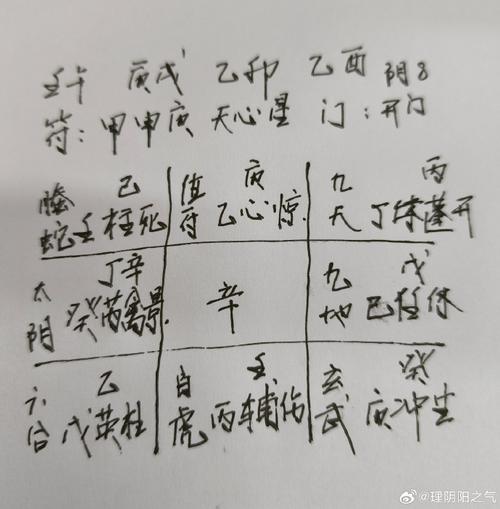 壬午 庚戌 乙卯 乙酉 阴8
符：甲申庚 天心星 门：开门
螣 己 值 庚 九 丙
蛇 壬柱死 符 乙心惊 天 丁蓬开
太 丁辛 九 戊
阴 癸芮禽景 辛 地 己任休
六 乙 白 壬 玄 癸
合 戊英柱 虎 丙辅伤 武 庚冲生
@理阴阳之气